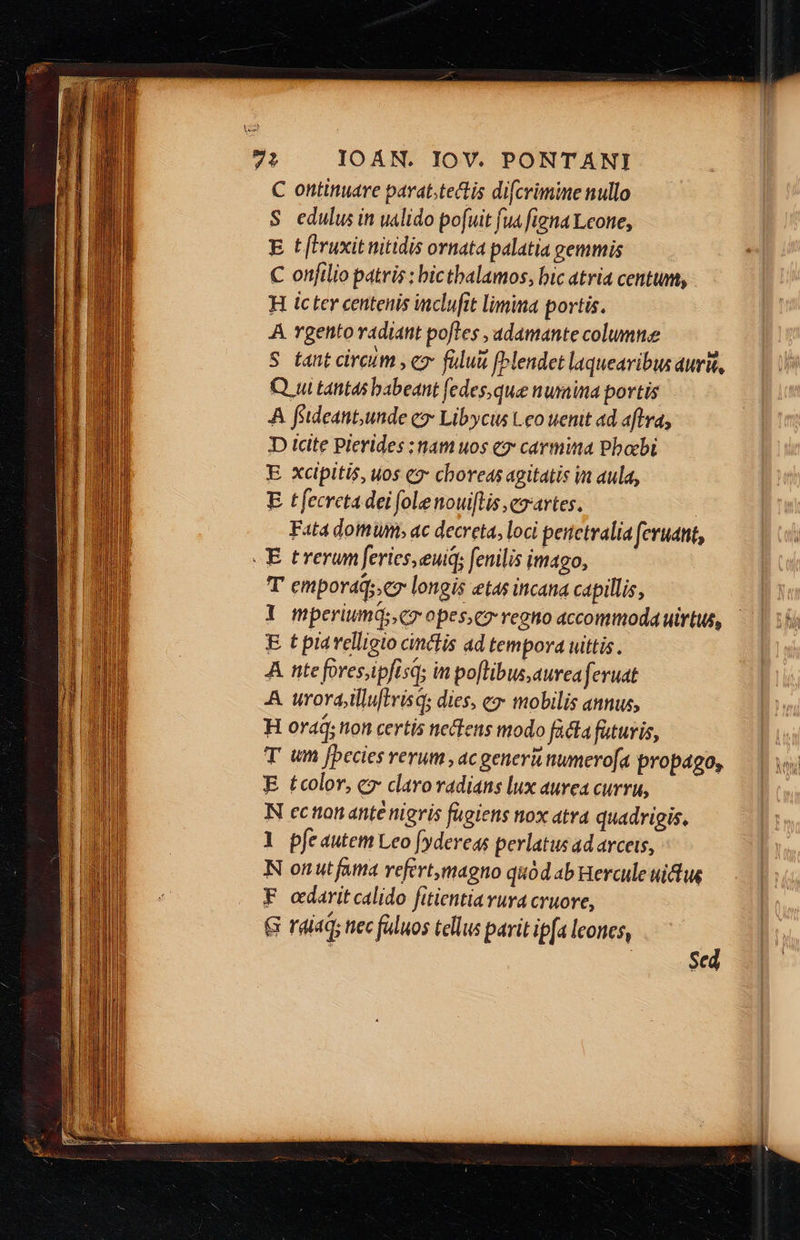 72 IOAN. IOV. PONTANI
C ontinuare parat, tectis diſcrimine nullo
S edulus in ualido poſuit ſua ſigna Leone,
E t ſtruxit nitidis ornata palatia gemmis
C onſilio patris; hic thalamos, hic atria centum,
H ic ter centenis incluſit limina portis.
A rgento radiant poſtes, adamante columnæ
S tant circùm, & fuluũ ſplendet laquearibus aurũ,
Q ui tantas habeant ſedes, quæ numina portis
A ſſideant, unde & Libycus Leo uenit ad aſtra,
D icite Pierides; nam uos & carmina Phœbi
E xcipitis, uos & choreas agitatis in aula,
E t ſecreta dei ſolæ nouiſtis, & artes.
Fata domum, ac decreta, loci penetralia ſeruant,
E t rerum ſeries, æuiq; ſenilis imago,
T emporaq;, & longis ætas incana capillis,
I mperiumq;, & opes, & regno accommoda uirtus,
E t pia relligio cinctis ad tempora uittis.
A nte fores, ipſisq; in poſtibus, aurea ſeruat
A urora, illuſtrisq; dies, & mobilis annus,
H oraq; non certis nectens modo facta futuris,
T um ſpecies rerum, ac generũ numeroſa propago,
E t color, & claro radians lux aurea curru,
N ec non antè nigris fugiens nox atra quadrigis.
I pſe autem Leo ſydereas perlatus ad arceis,
N on ut fama refert, magno quòd ab Hercule uictus
F œdarit calido ſitientia rura cruore,
G raiaq; nec fuluos tellus parit ipſa leones,
Sed